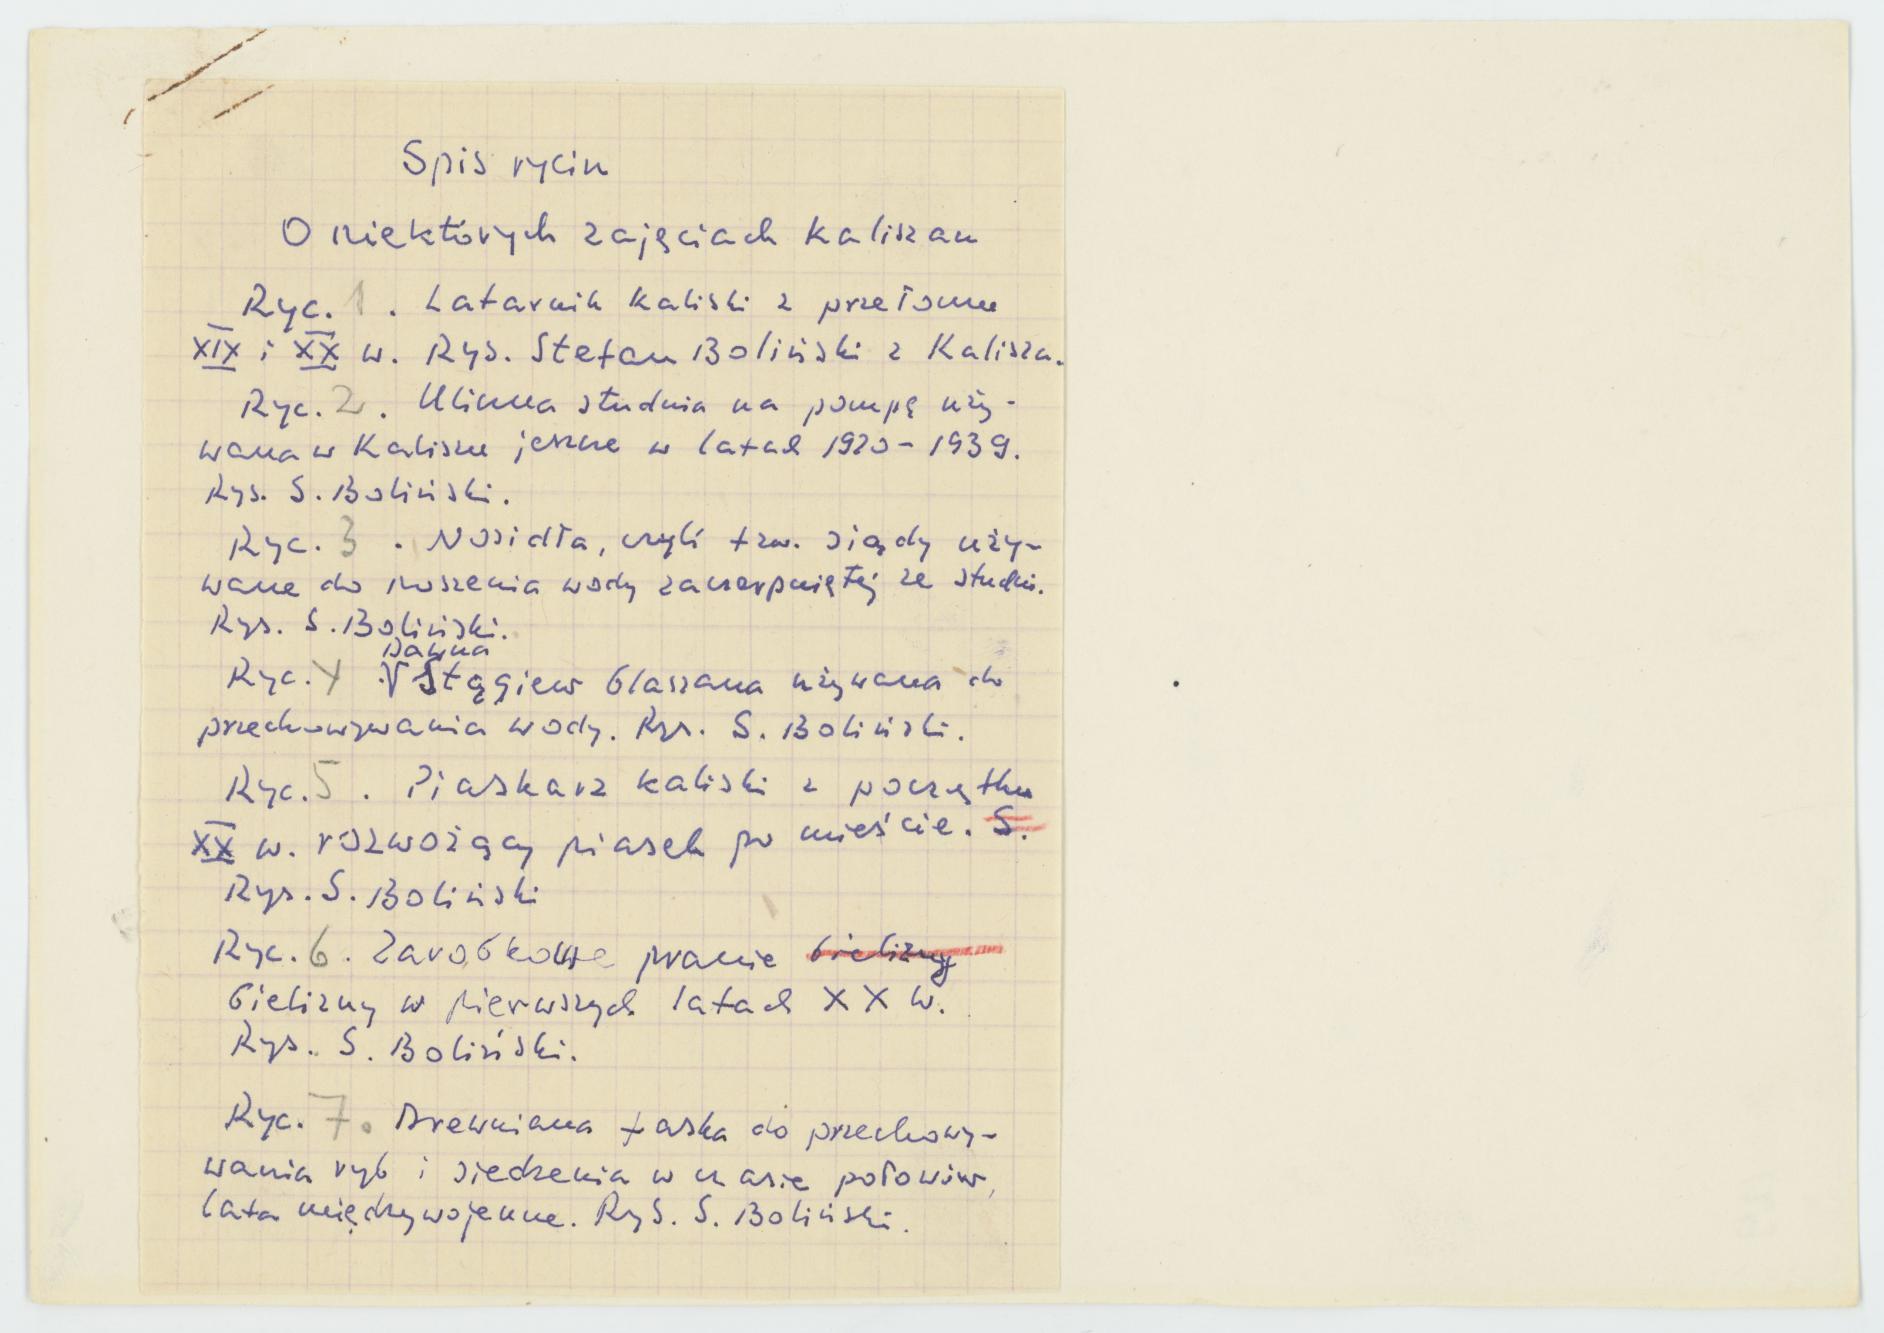 Spis rycin
O niektórych zajęciach kaliszan
Ryc. 1. Latarnik kaliski z przełomu
XIX i XX w. Rys. Stefan Boliński z Kalisza.
Ryc. 2. Uliczna studnia na pompę uży-
wana w Kaliszu jeszcze w latach 1920-1939.
Rys. S. Boliński.
Ryc. 3. Nosidła, czyli tzw. siądy uży-
wane do noszenia wody zaczerpniętej ze studni.
Rys. S. Boliński.
Dawna
Ryc. 4. Stągiew blaszana używana do
przechowywania wody. Rys. S. Boliński.
Ryc. 5. Piaskarz kaliski z początku
XX w. rozwożący piasek po mieście. S.
Rys. S. Boliński
Ryc. 6. Zarobkowe pranie bielizny
bielizny w pierwszych latach XX w.
Rys. S. Boliński.
Ryc. 7. Drewniana taska do przechowy-
wania ryb i siedzenia w czasie połowów,
lata międzywojenne. Rys. S. Boliński.